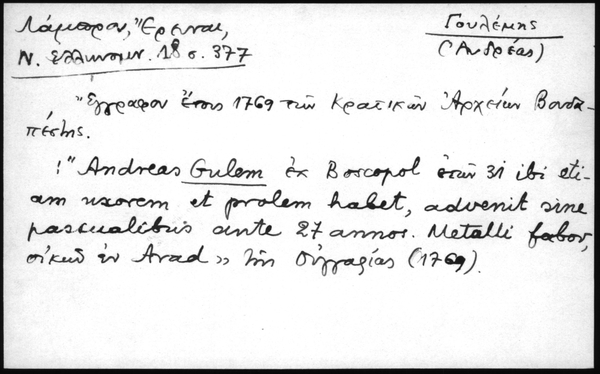 Λάμπρου, Ἔρευναι,
Ν. Ἑλληνομν. 18 σ. 377
Γουλέμης
(Ἀνδρέας)
Ἔγγραφον ἔτους 1769 τῶν Κρατικῶν Ἀρχείων Βουδα-
πέστης.
: "Andreas Gulem ἐκ Boscopol ἐτῶν 31 ibi eti-
am uxorem et prolem habet, advenit sine
pascualibus ante 27 annos. Metalli fabor,
οἰκεῖ ἐν Arad» τῆς Οὑγγαρίας (1769).